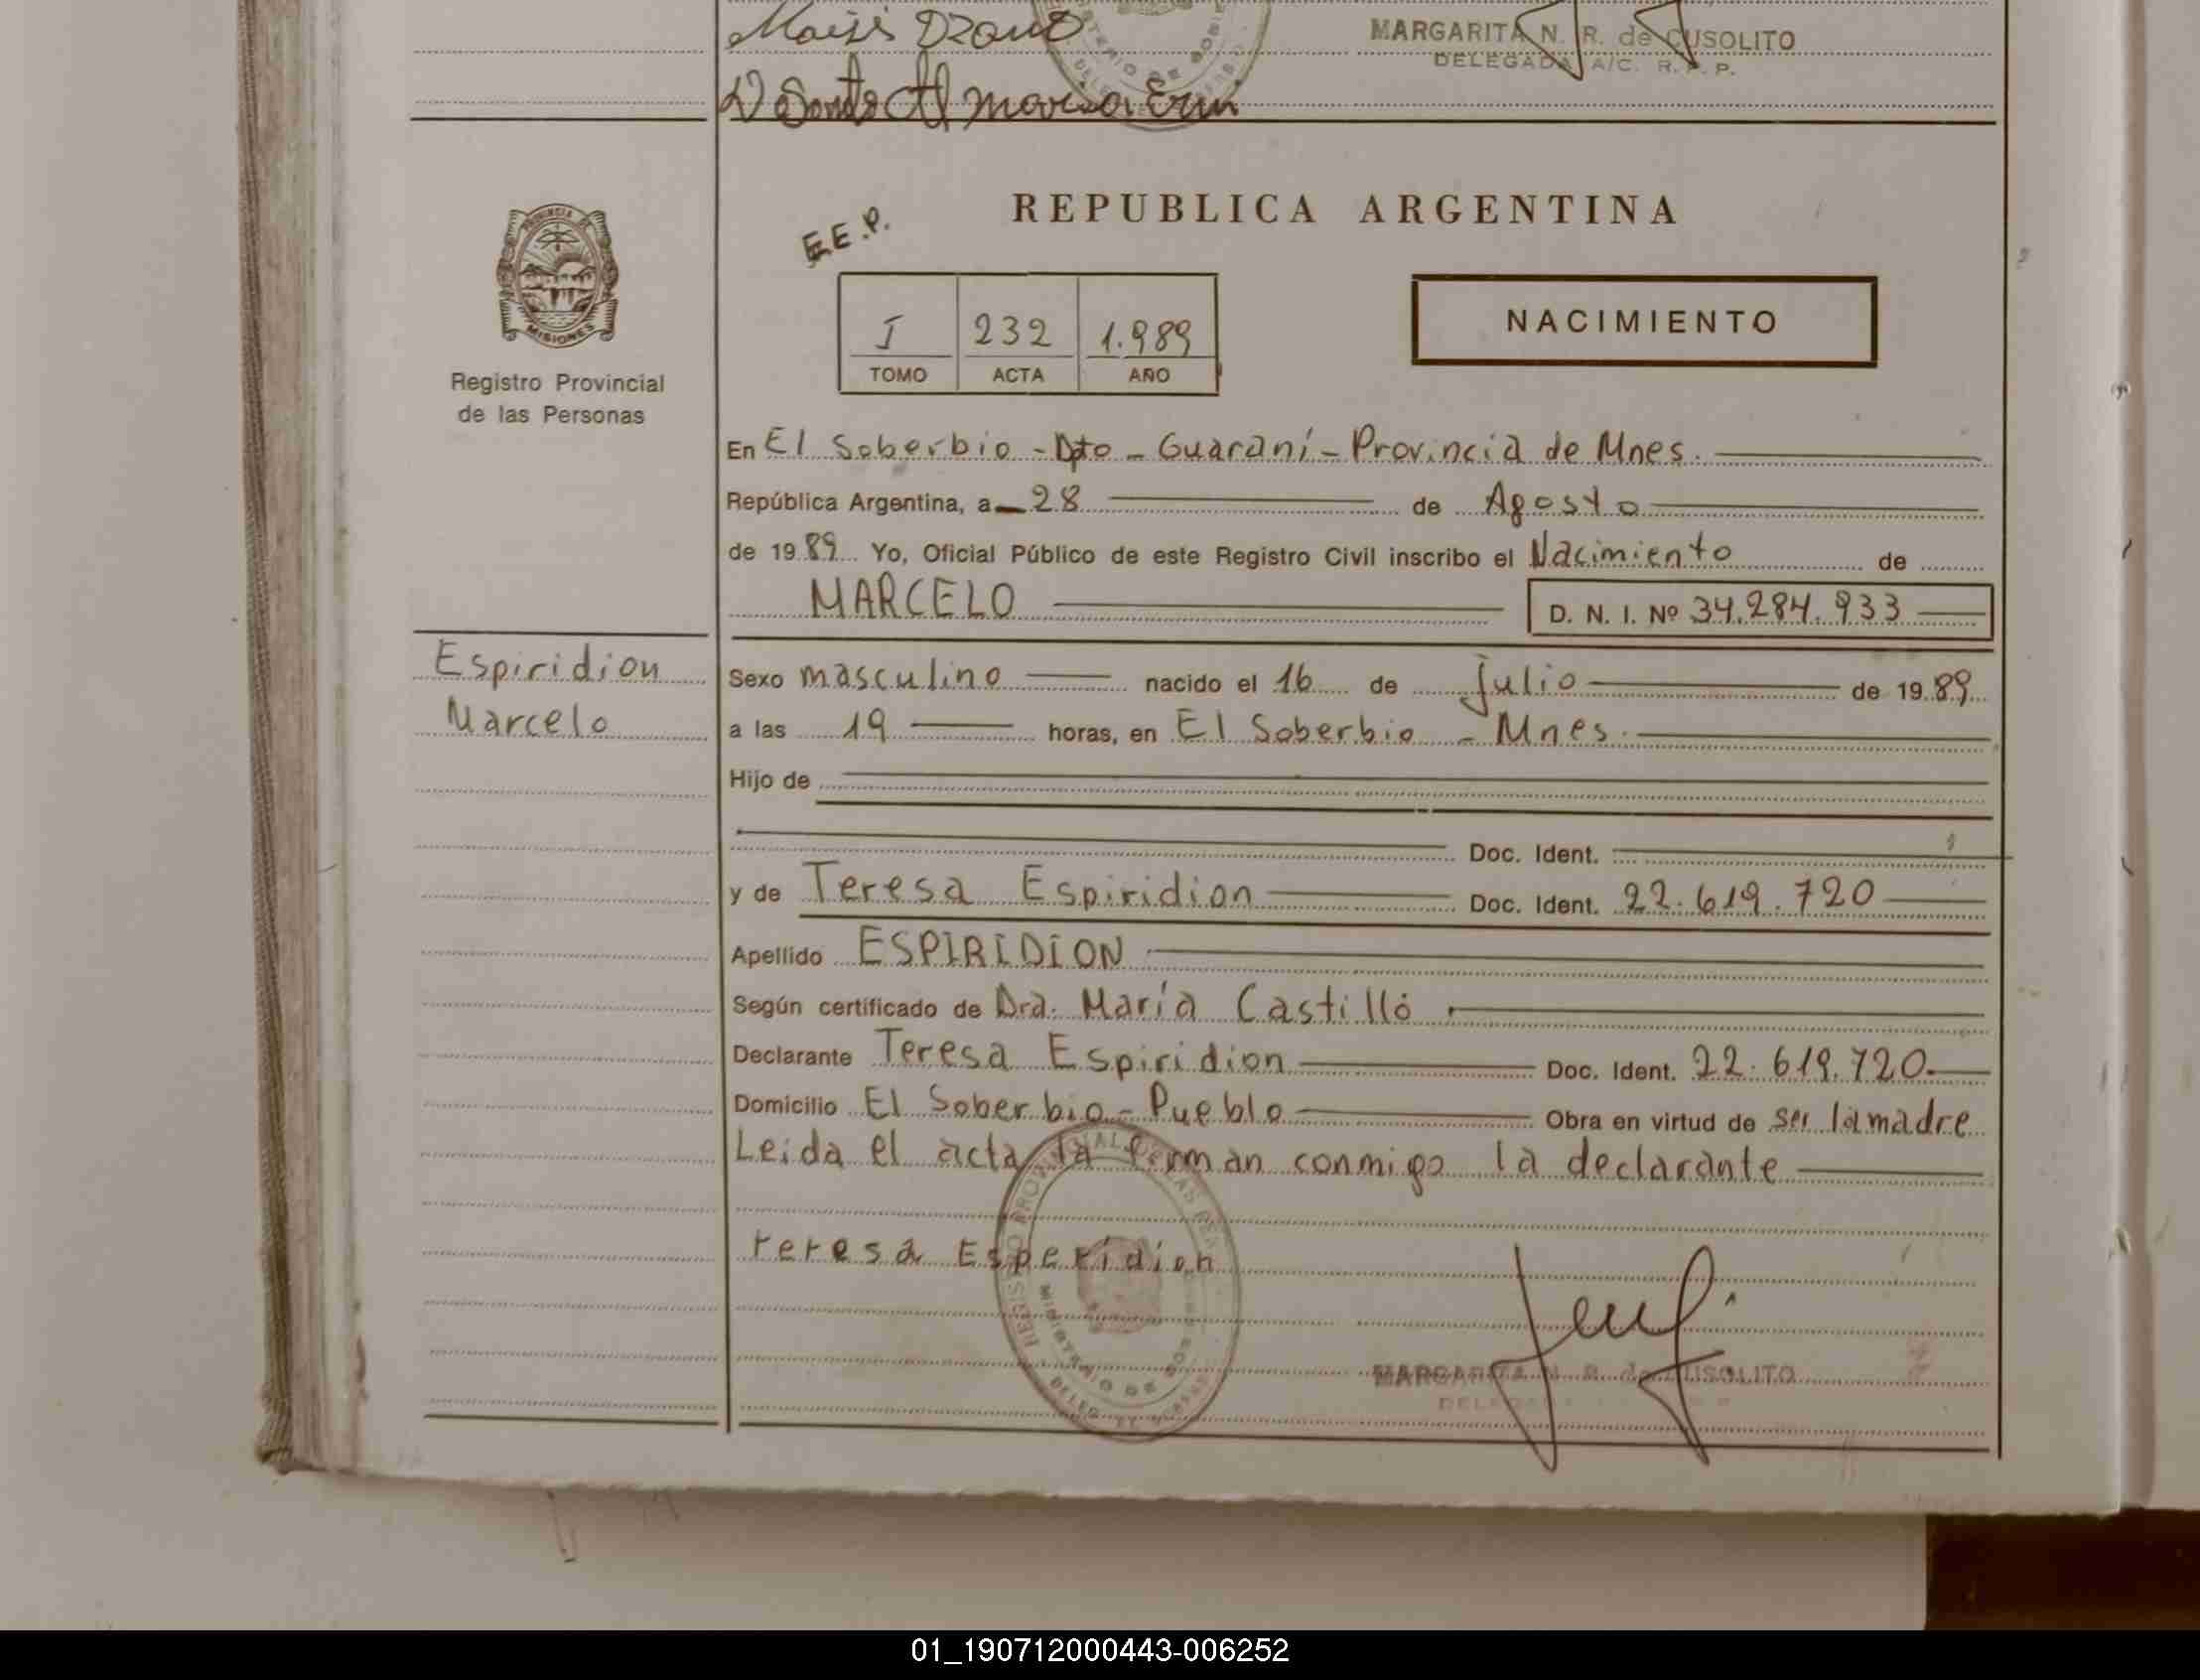 Moisés
MARGARITA N. R. de CUSOLITO
DELEGADA A/C. R. P. P.
PROVINCIA DE
MISIONES
Registro Provincial
de las Personas
E.E.P.
REPUBLICA ARGENTINA
I 232 1.989
TOMO ACTA AÑO
NACIMIENTO
En El Soberbio - Dpto - Guaraní - Provincia de Mnes.
República Argentina, a 28 de Agosto
de 1989 Yo, Oficial Público de este Registro Civil inscribo el Nacimiento de
MARCELO D. N. I. Nº 34.284.933
Espiridion
Marcelo
Sexo masculino nacido el 16 de julio de 1989
a las 19 horas, en El Soberbio - Mnes.
Hijo de
Doc. Ident.
y de Teresa Espiridion Doc. Ident. 22.619.720
Apellido ESPIRIDION
Según certificado de Dra. María Castilló
Declarante Teresa Espiridion Doc. Ident. 22.619.720
Domicilio El Soberbio - Pueblo Obra en virtud de ser la madre
Leida el acta la firman conmigo la declarante
teresa Esperidion
MARGARITA N. R. de CUSOLITO
01_190712000443-006252